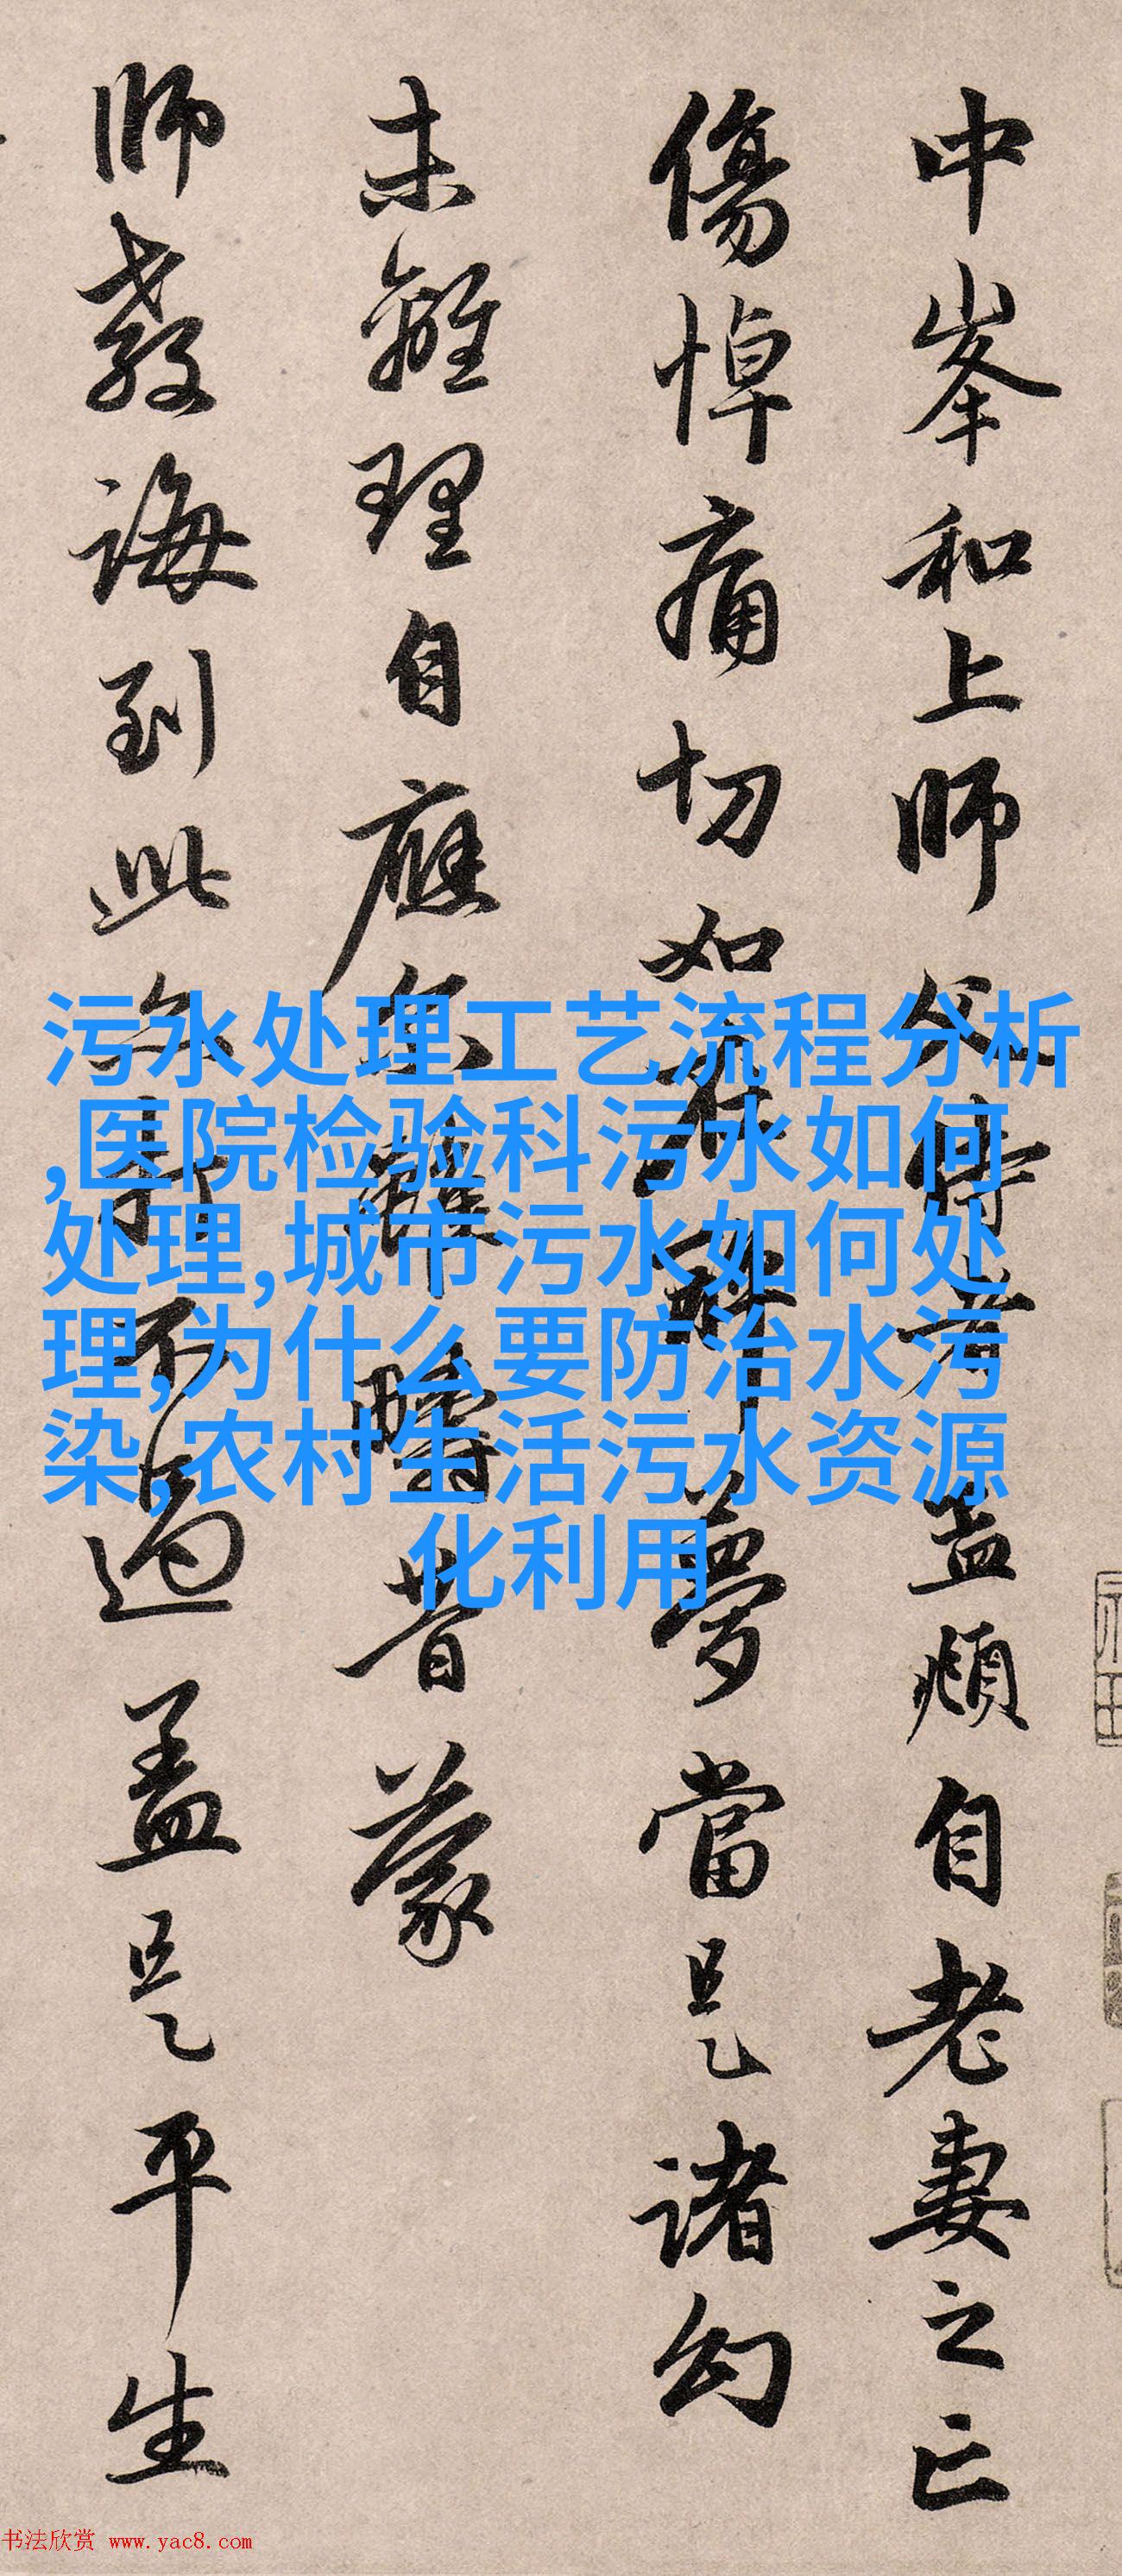 中峯和上師父侍者孟頫自老妻之亡
傷悼痛切如在醉夢當是諸幻
未離理自應尔雖畴昔蒙
師教誨到此亦打不過盖是平生
污水处理工艺流程分析
,医院检验科污水如何
处理,城市污水如何处
理,为什么要防治水污
染,农村生活污水资源
化利用
书法欣赏 www.yac8.com